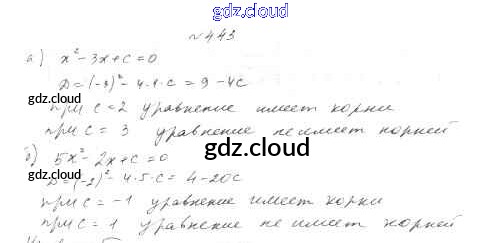 gdz.cloud
№ 443
а) x² - 3x + c = 0
D = (-3)² - 4·1·c = 9 - 4c
gdz.cloud
при c = 2 уравнение имеет корни
gdz.cloud
при c = 3 уравнение не имеет корней
б) 5x² - 2x + c = 0
gdz.cloud
D = (-2)² - 4·5·c = 4 - 20c
gdz.cloud
gdz.cloud
при c = -1 уравнение имеет корни
при c = 1 уравнение не имеет корней